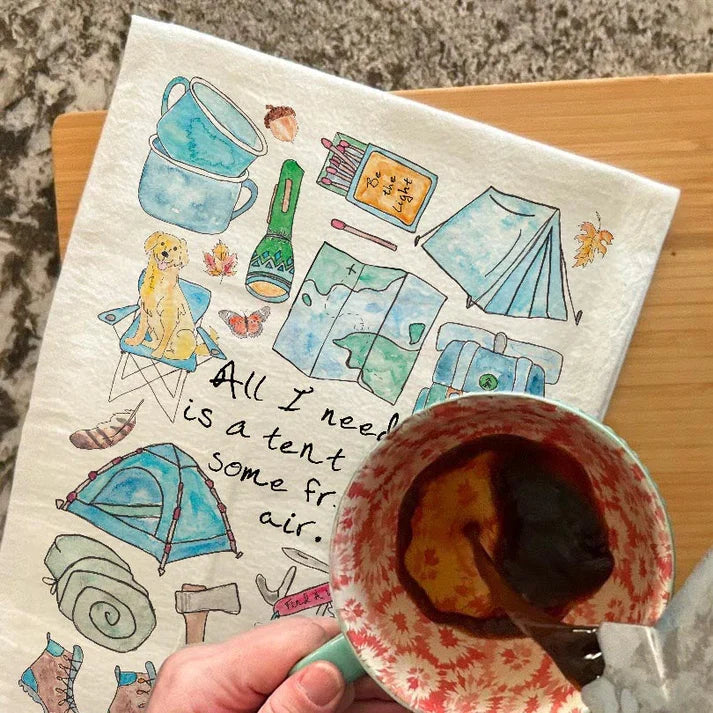 Be
the
light
All I need
is a tent
some fr
air.